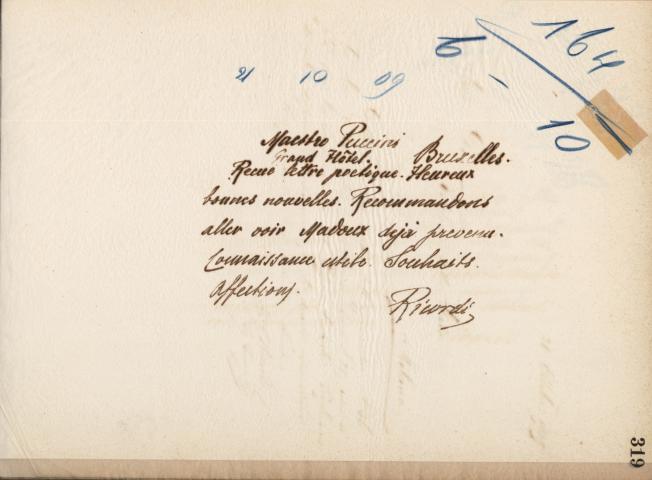 164
6 - 10
21 10 09
Maestro Puccini
Grand Hôtel. Bruxelles.
Recue lettre poetique. Heureux
bonnes nouvelles. Recommandons
aller voir Madoux dejà prevenu.
Connaissance utile. Souhaits.
Affections.
Ricordi
319